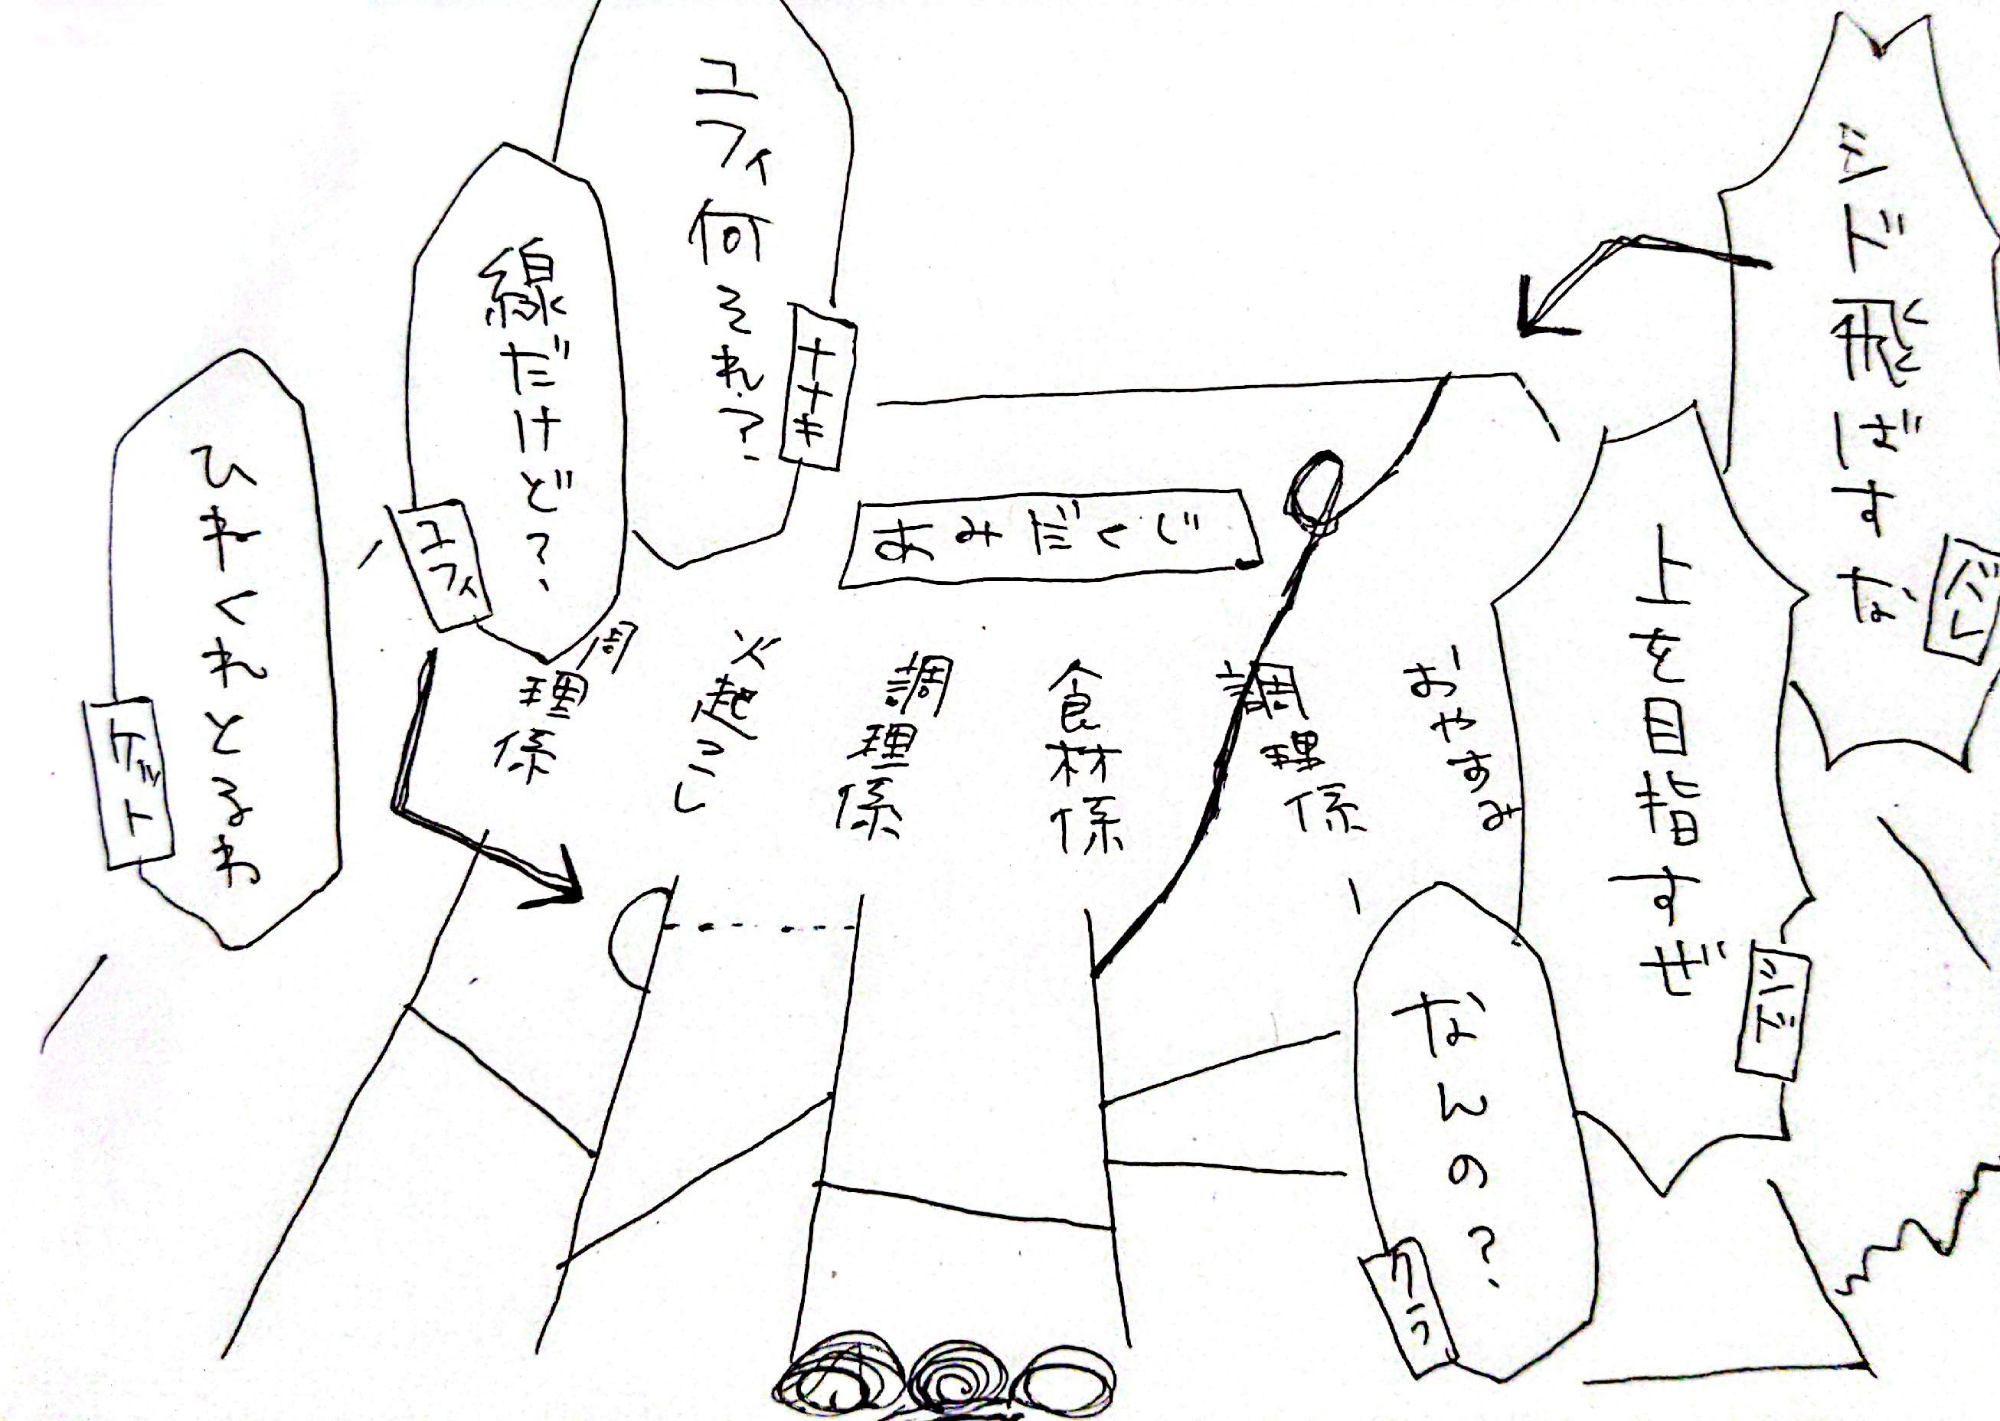 シド飛ばすな
バレ
上を目指すぜ
シド
なんの?
クラ
ユフィ何それ?
ナナキ
線だけど?
ユフィ
ひねくれとるわ
ケット
あみだくじ
おやすみ
調理係
食材係
調理係
火起こし
調理係